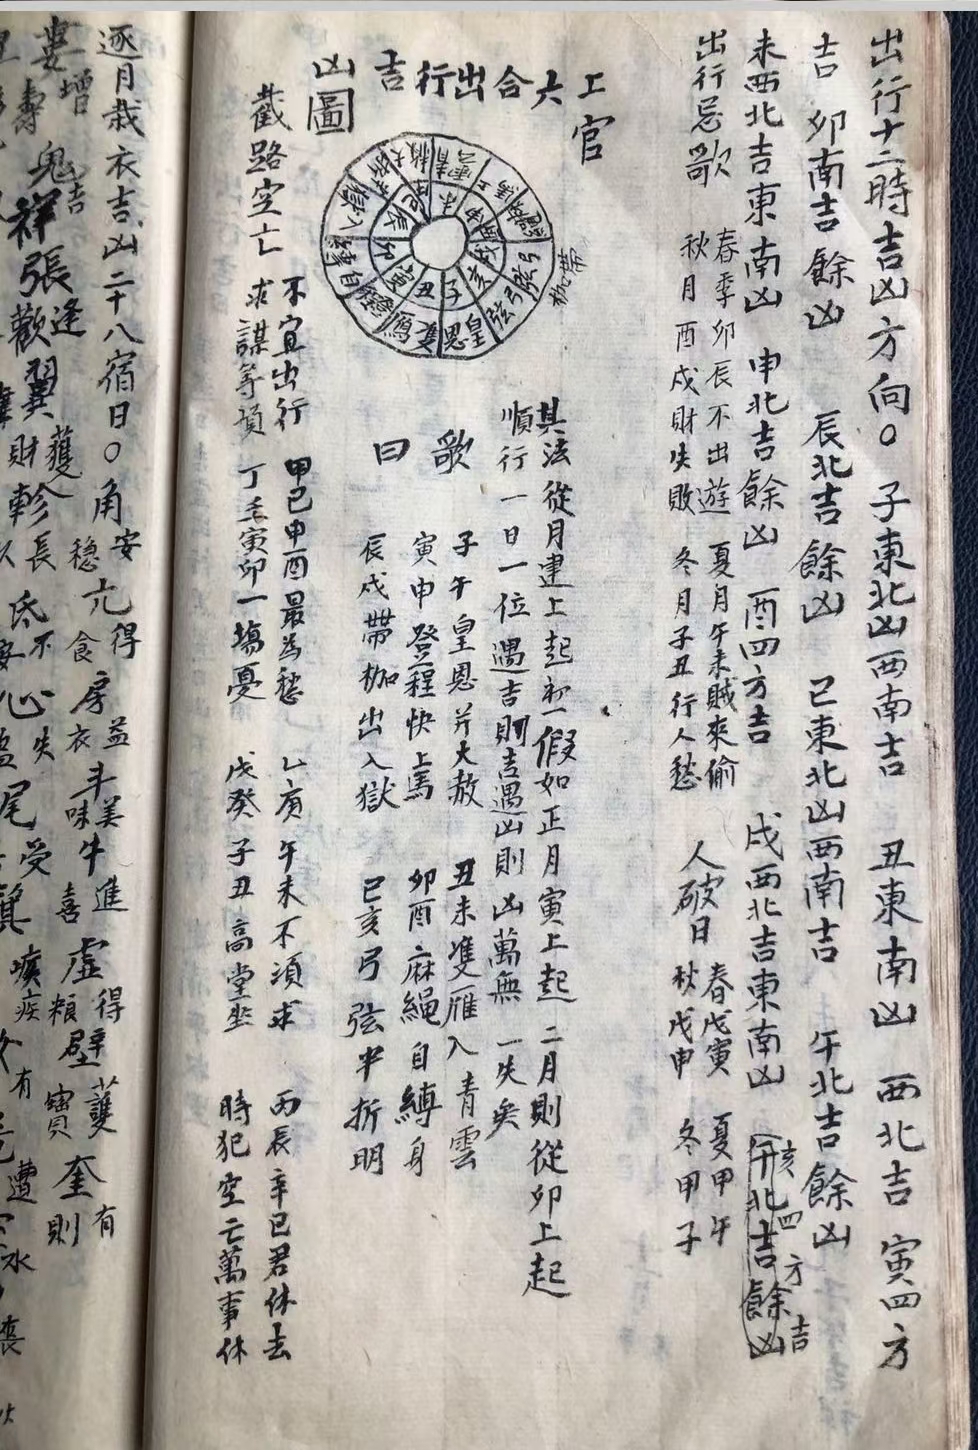 出行十二時吉凶方向〇 子東北凶西南吉 丑東南凶 西北吉 寅四方
吉 卯南吉餘凶 辰北吉餘凶 巳東北凶西南吉 午北吉餘凶
未西北吉東南凶 申北吉餘凶 酉四方吉 戌西北吉東南凶 午北吉餘凶
亥四方吉
出行忌歌 春季卯辰不出遊 夏月午未賊來偷
秋月酉戌財失敗 冬月子丑行人愁
人破日 春戊寅 夏甲午
秋戊申 冬甲子
上官
六合出行吉
凶圖
皇恩
雙鴈
自縛
入獄
大赦
青雲
弓弦
帶枷
子
丑
寅
卯
辰
巳
亥
其法從月建上起初一假如正月寅上起 二月則從卯上起
順行一日一位遇吉則吉遇凶則凶萬無一失矣
歌曰
子午皇恩并大赦 丑未雙雁入青雲
寅申登程快上馬 卯酉麻繩自縛身
辰戌帶枷出入獄 巳亥弓弦半折明
截路空亡 不宜出行
求謀等項
甲己申酉最為愁 乙庚午未不須求 丙辰辛巳君休去
丁壬寅卯一場憂 戊癸子丑高堂坐 時犯空亡萬事休
逐月裁衣吉凶二十八宿日〇角安
穩亢得
食房益
衣斗美
味牛進
喜虛得
粮壁獲
寶奎有
則婁增
壽鬼吉
祥張逢
歡翼獲
財軫長
氐不
心失
尾受